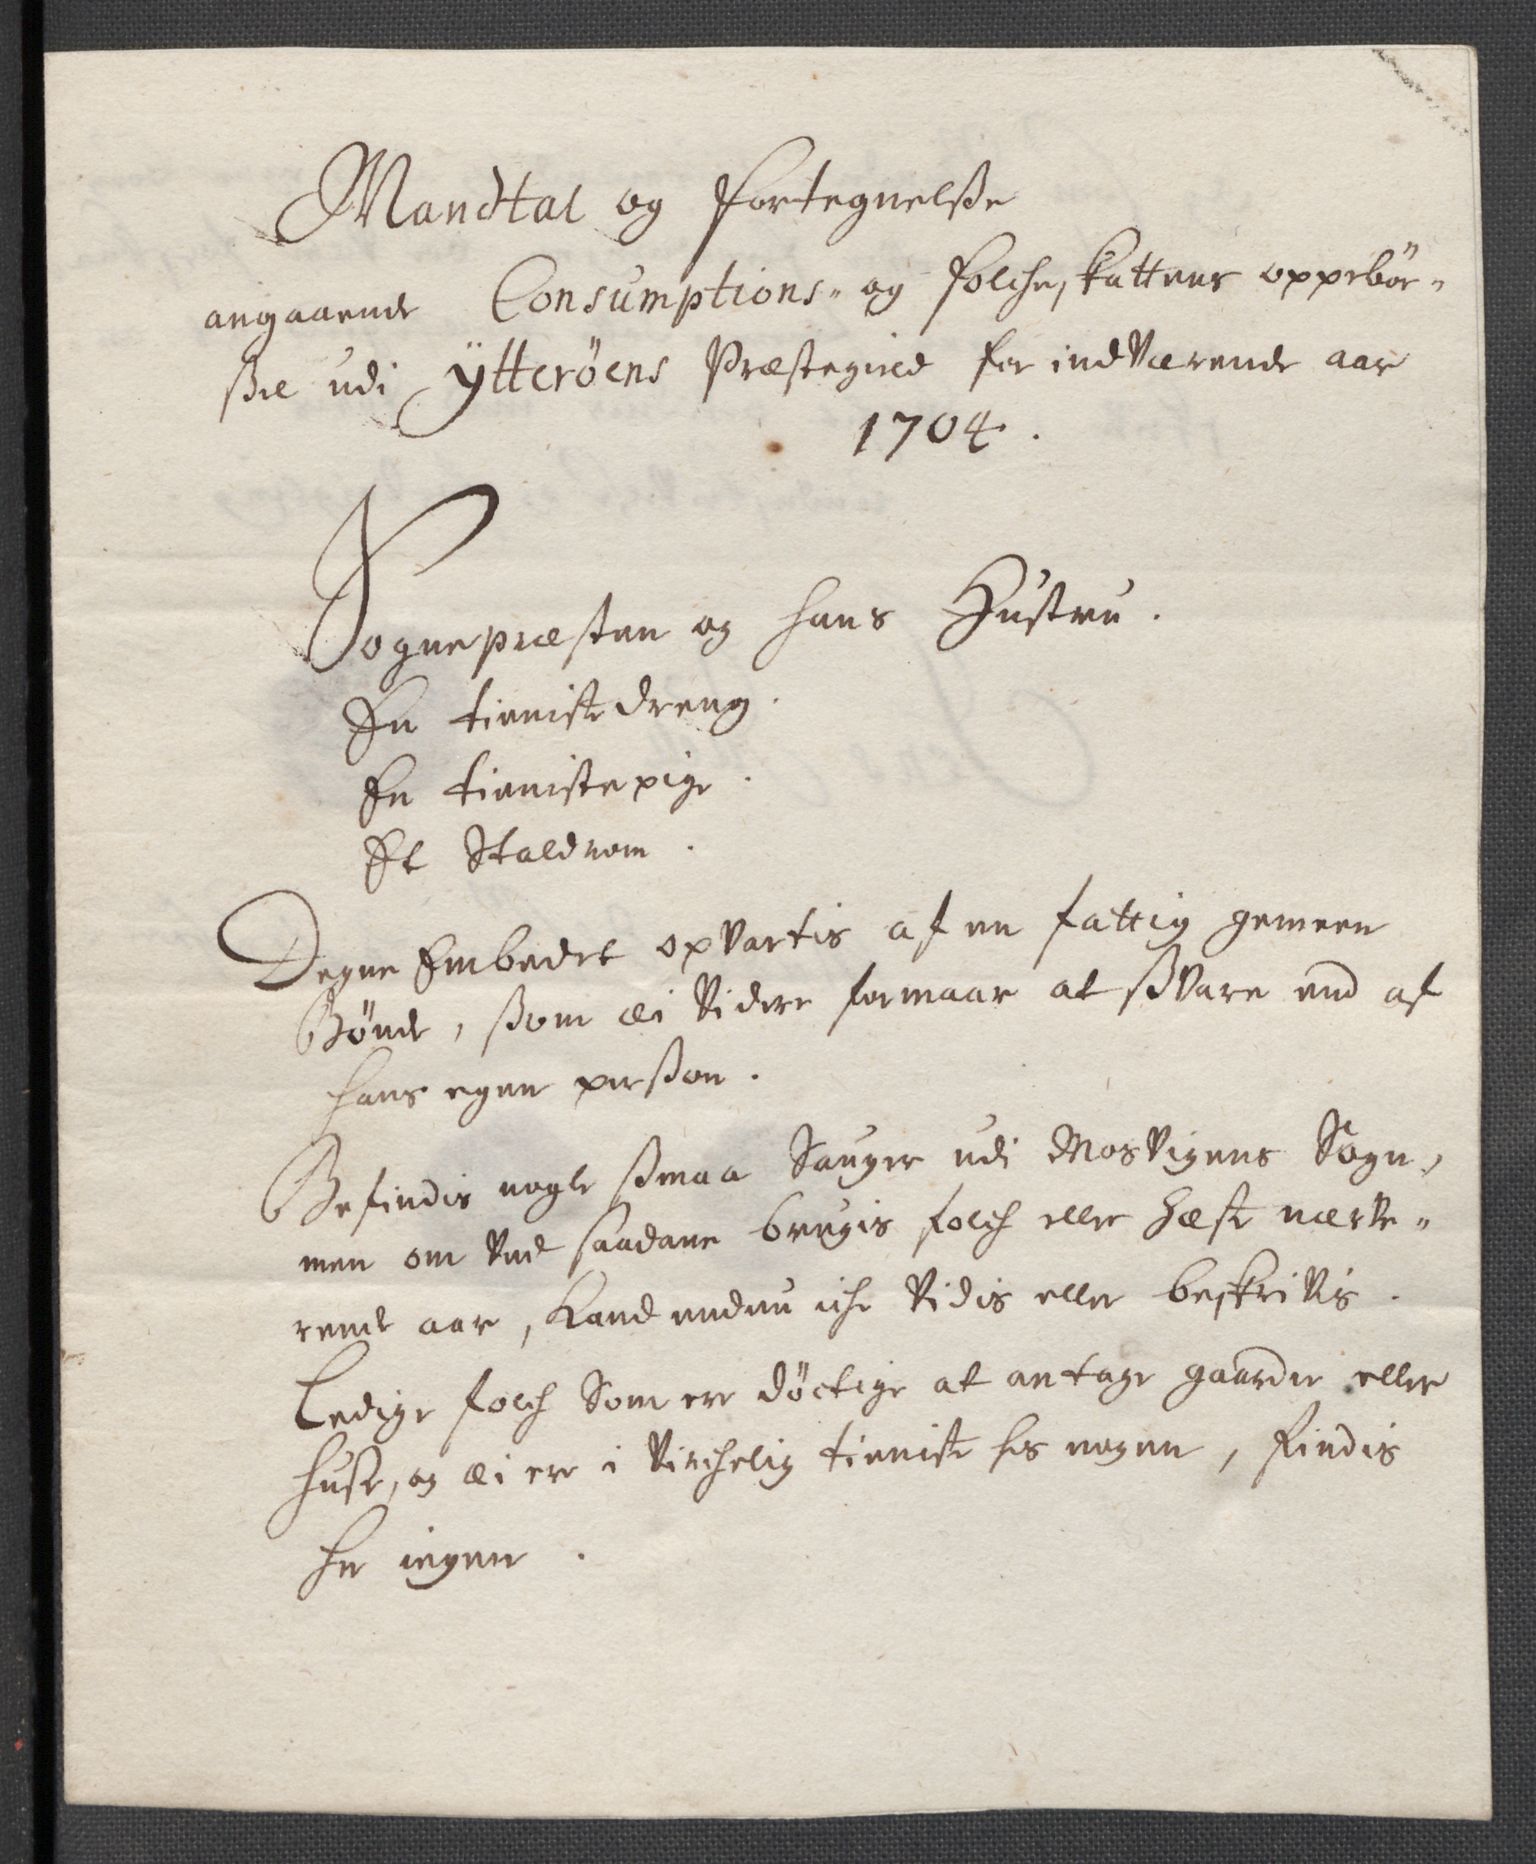 Mandtal og fortegnelße
angaaende Consumptions- og folcheskattens oppebör-
ßel udi Ytteröens Præstegield for indværende aar
1704.
Sognepræsten og hans Hustru.
En tieniste dreng.
En tienistepige.
Et Staldrom.
Degne Embedet opvartis af en fattig gemeen
Bönde, ßom æi videre formaar at ßvare end af
hans egen perßon.
Befindis nogle ßmaa Sauger udi Mosvigens Sogn,
men om ved saadane brugis folch eller Hæst nærve-
rende aar, kand endnu iche vidis eller beskrivis.
Ledige folch Som ere döctige at antage gaarde eller
huse, og æi ere i virchelig tieniste hos nogen, findis
her ingen.